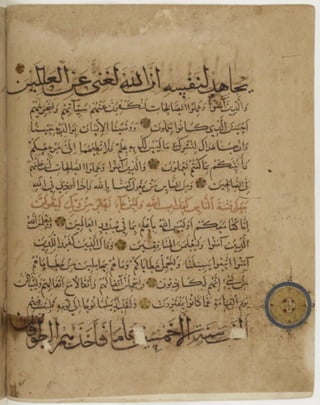 يجاهد لنفسه ان الله لغني عن العالمين
والذين آمنوا وعملوا الصالحات لنكفرن عنهم سيئاتهم ولنجزينهم
احسن الذي كانوا يعملون ووصينا الانسان بوالديه حسنا
وان جاهداك لتشرك بي ما ليس لك به علم فلا تطعهما الي مرجعكم
فانبئكم بما كنتم تعملون والذين آمنوا وعملوا الصالحات لندخلنهم
في الصالحين ومن الناس من يقول آمنا بالله فاذا اوذي في الله
جعل فتنة الناس كعذاب الله ولئن جاء نصر من ربك ليقولن
انا كنا معكم اوليس الله باعلم بما في صدور العالمين وليعلمن الله
الذين آمنوا وليعلمن المنافقين وقال الذين كفروا للذين
آمنوا اتبعوا سبيلنا ولنحمل خطاياكم وما هم بحاملين من خطاياهم
من شيء انهم لكاذبون وليحملن اثقالهم واثقالا مع اثقالهم وليسئلن
يوم القيامة عما كانوا يفترون ولقد ارسلنا نوحا الى قومه فلبث فيهم
الف سنة الا خمسين عاما فاخذهم الطوفان